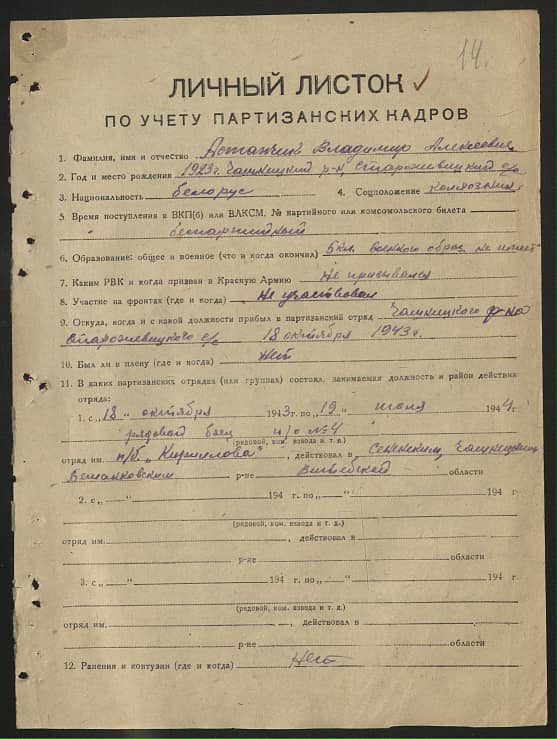 14.
ЛИЧНЫЙ ЛИСТОК ✓
ПО УЧЕТУ ПАРТИЗАНСКИХ КАДРОВ
1. Фамилия, имя и отчество Астапчик Владимир Алексеевич
2. Год и место рождения 1923г. Чашницкий р-н
3. Национальность белорус 4. Соцположение колхозник
5. Время поступления в ВКП(б) или ВЛКСМ, № партийного или комсомольского билета
беспартийный
6. Образование: общее и военное (что и когда окончил) 5кл. военного образ. не имеет
7. Каким РВК и когда призван в Красную Армию Не призывался
8. Участие на фронтах (где и когда) Не участвовал
9. Откуда, когда и с какой должности прибыл в партизанский отряд Чашницкого р-на
с/с 18 октября 1943г.
10. Был ли в плену (где и когда) Нет
11. В каких партизанских отрядах (или группах) состоял, занимаемая должность и район действия
отряда:
1. с „18" октября 1943г. по „19" июля 1944г
рядовой боец п/о №4
(рядовой, ком. взвода и т. д.)
отряд им. п/б „Кириллова", действовал в Сенненским, Чашницким,
р-не Витебской области
2. с „ " 194 г. по „ " 194 г.
(рядовой, ком. взвода и т. д.)
отряд им. , действовал в
р-не области
3. с „ " 194 г. по „ " 194 г.
(рядовой, ком. взвода и т. д.)
отряд им. , действовал в
р-не области
12. Ранения и контузии (где и когда) Нет